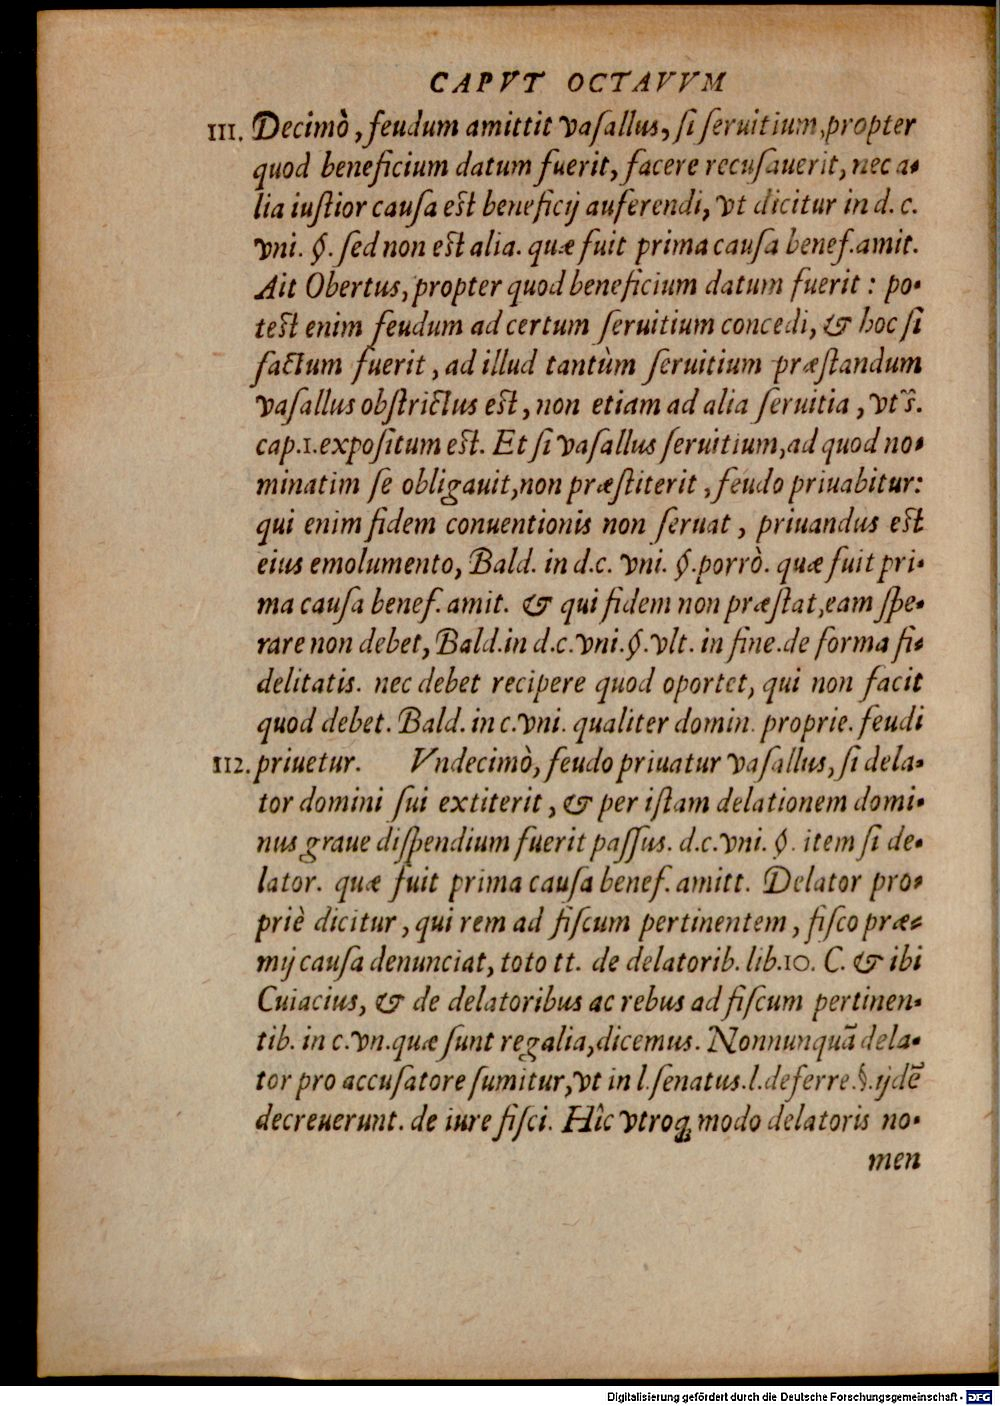 CAPVT OCTAVVM
111. Decimò, feudum amittit vaſallus, ſi ſeruitium, propter
quod beneficium datum fuerit, facere recuſauerit, nec a-
lia iuſtior cauſa eſt beneficij auferendi, vt dicitur in d. c.
vni. §. ſed non eſt alia. quæ fuit prima cauſa benef. amit.
Ait Obertus, propter quod beneficium datum fuerit: po-
teſt enim feudum ad certum ſeruitium concedi, & hoc ſi
factum fuerit, ad illud tantùm ſeruitium præſtandum
vaſallus obſtrictus eſt, non etiam ad alia ſeruitia, vt s̃.
cap. 1. expoſitum eſt. Et ſi vaſallus ſeruitium, ad quod no-
minatim ſe obligauit, non præſtiterit, feudo priuabitur:
qui enim fidem conuentionis non ſeruat, priuandus eſt
eius emolumento, Bald. in d. c. vni. §. porrò. quæ fuit pri-
ma cauſa benef. amit. & qui fidem non præſtat, eam ſpe-
rare non debet, Bald. in d. c. vni. §. vlt. in fine. de forma fi-
delitatis. nec debet recipere quod oportet, qui non facit
quod debet. Bald. in c. vni. qualiter domin. proprie. feudi
112. priuetur. Vndecimò, feudo priuatur vaſallus, ſi dela-
tor domini ſui extiterit, & per iſtam delationem domi-
nus graue diſpendium fuerit paſſus. d. c. vni. §. item ſi de-
lator. quæ fuit prima cauſa benef. amitt. Delator pro-
priè dicitur, qui rem ad fiſcum pertinentem, fiſco præ-
mij cauſa denunciat, toto tt. de delatorib. lib. 10. C. & ibi
Cuiacius, & de delatoribus ac rebus ad fiſcum pertinen-
tib. in c. vn. quæ ſunt regalia, dicemus. Nonnunquã dela-
tor pro accuſatore ſumitur, vt in l. ſenatus. l. deferre. §. ijdẽ
decreuerunt. de iure fiſci. Hîc vtroq; modo delatoris no-
men
Digitalisierung gefördert durch die Deutsche Forschungsgemeinschaft - DFG